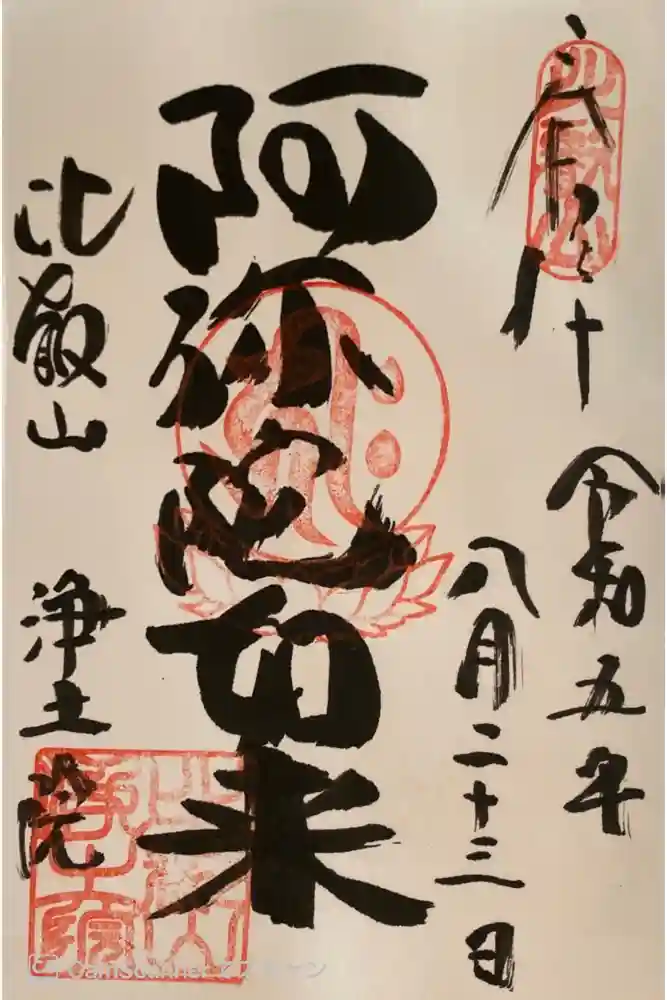 奉拝
令和五年
八月二十三日
阿弥陀如来
比叡山
浄土院
比叡山